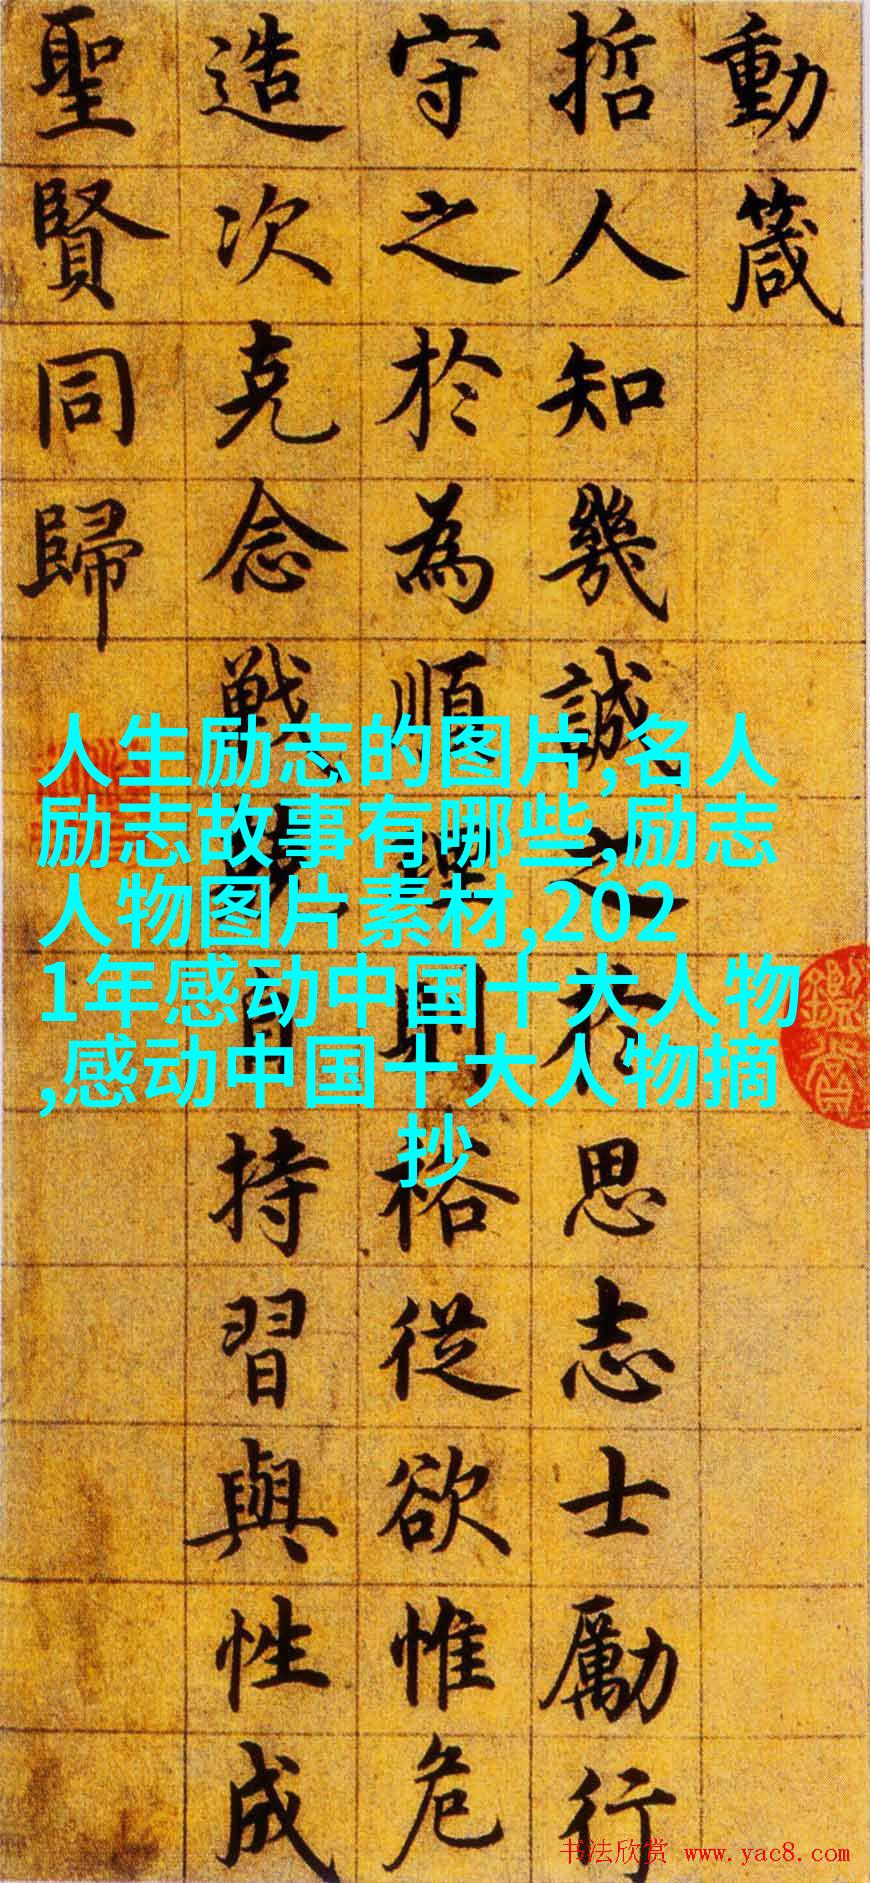 動箴
哲人知幾誠之於思志士勵行
守之於為順理則裕從欲惟危
造次克念戰兢自持習與性成
聖賢同歸
人生励志的图片,名人
励志故事有哪些,励志
人物图片素材,202
1年感动中国十大人物
,感动中国十大人物摘
抄
书法欣赏 www.yac8.com